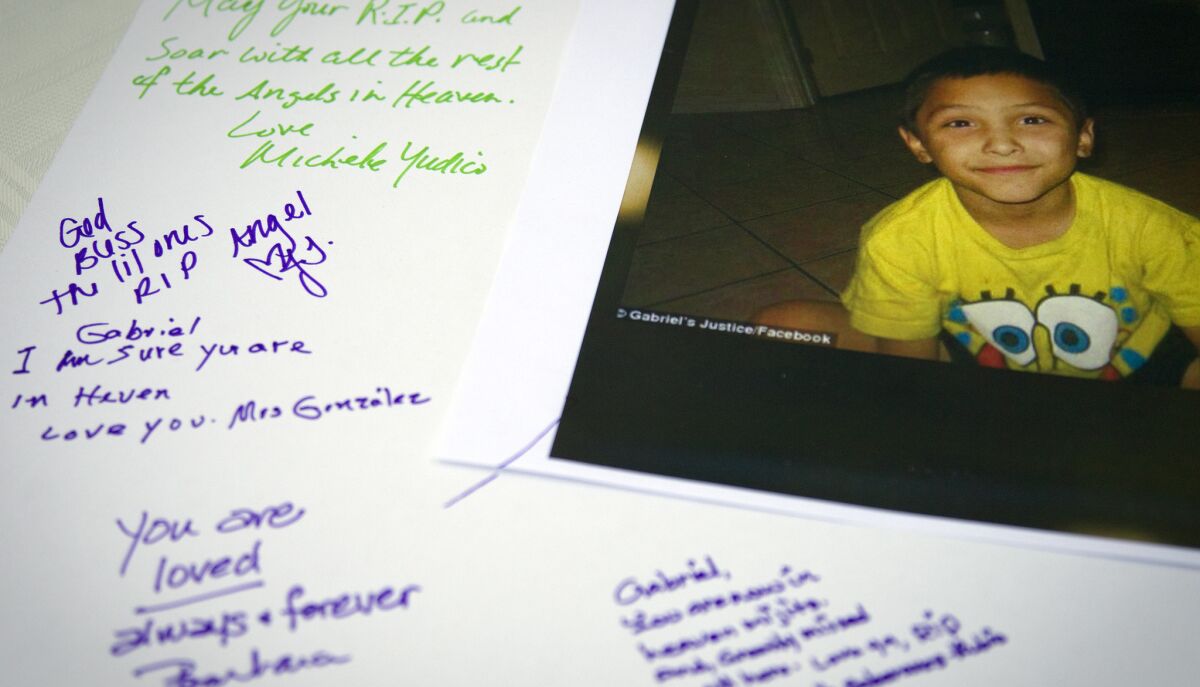 May your R.I.P. and
Soar with all the rest
of the Angels in Heaven.
Love
Michele Yudico
God
Bless
the lil ones
RIP
Angel
Gabriel
I am sure yu are
in Heven
Love you. Mrs González
You are
loved
always + forever
Barbara
© Gabriel's Justice/Facebook
Gabriel,
You are now in
heaven mijito.
and, Greatly missed
Love ya, RIP